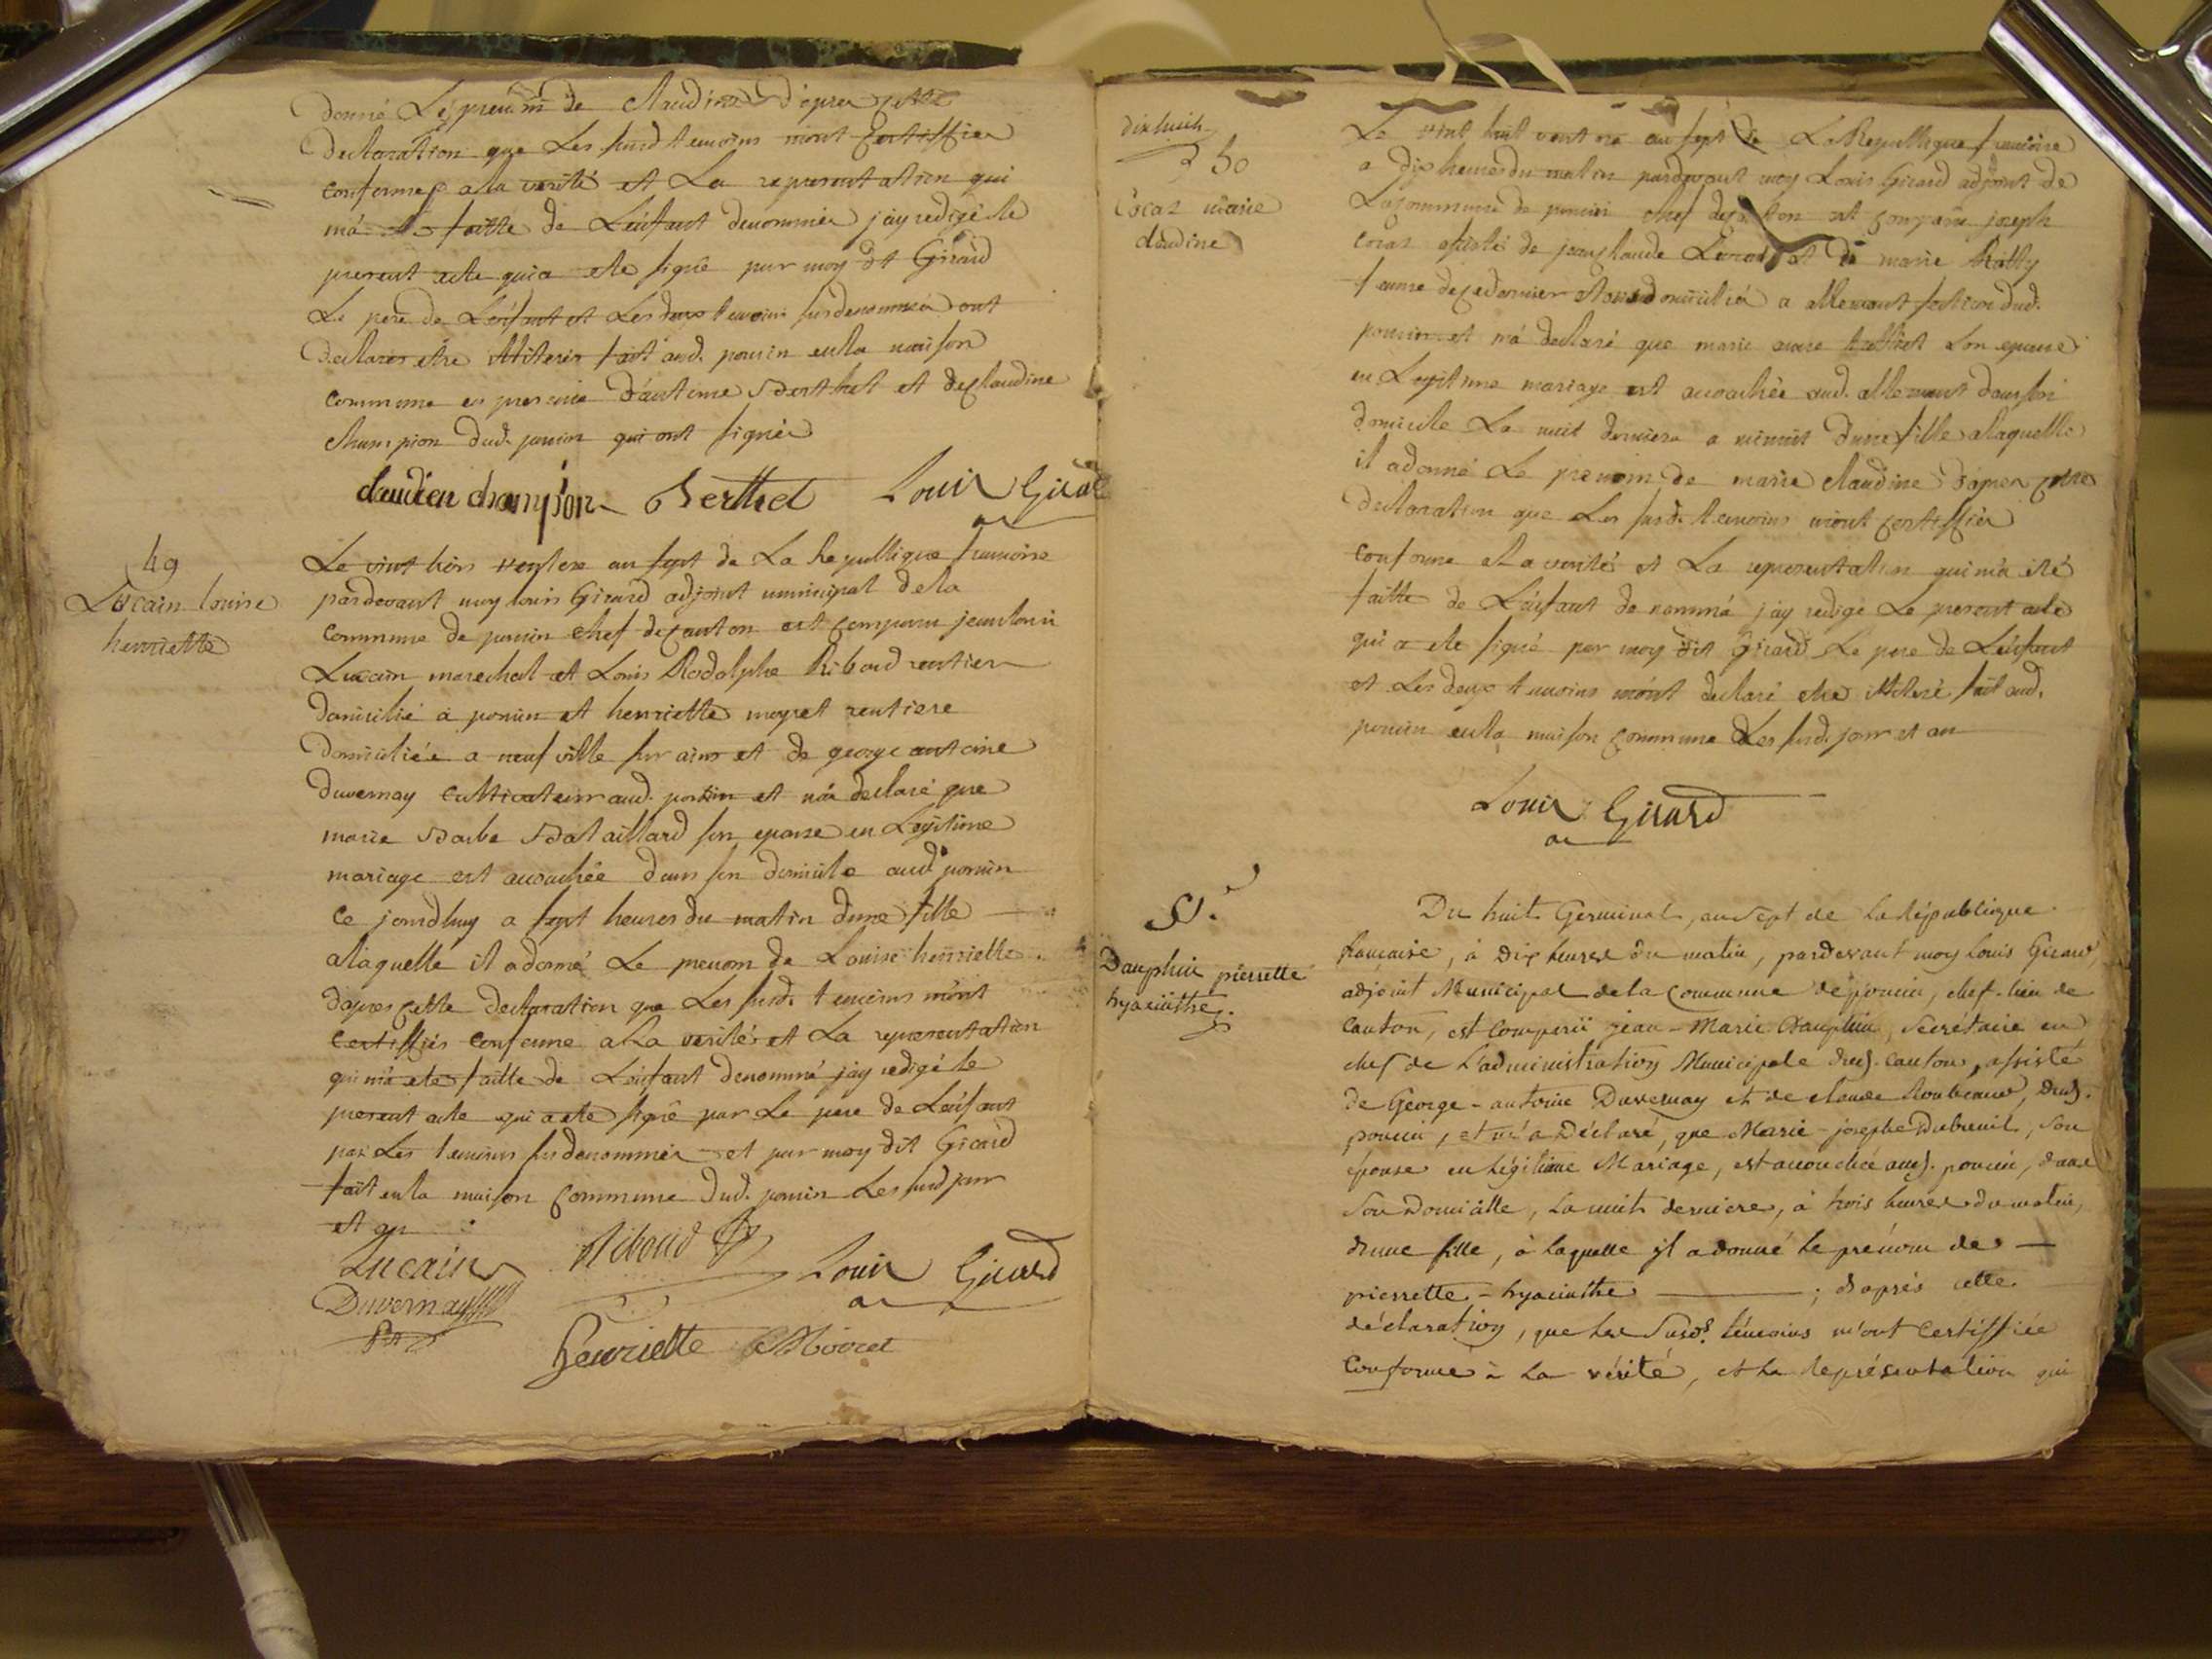 donné Le prenom de Claudine d'apres cette
declaration que Les susd temoins m'ont certiffier
conformes a la verité et La representation qui
m'a été faitte de L'enfant denommée j'ay redigé le
present acte qui a eté signé par moy dt Girard
Le pere de L'enfant et Les deux temoins susdenommés ont
declarer etre illiteres fait aud. poncin en la maison
commune en presence d'antoine Berthet et de claudine
champion dud. poncin qui ont signés
claudien champion Berthet Louis Girard
49
Lucain louise
henriette
Le vint trois ventose an sept de La Republique francoise
pardevant moy louis Girard adjoint municipal de la
commune de poncin chef de canton est comparu jean louis
Lucain marechal et Louis Rodolphe Riboud rentier
domicilié a poncin et henriette moyret rentiere
domiciliée a neufville sur ains et de george antoine
duvernay cultivateur aud. poncin et m'a declaré que
marie Barbe Bataillard son epouse en Legitime
mariage est accouchée dans son domicile aud poncin
ce jourdhuy a sept heures du matin d'une fille
alaquelle il a donné Le prenom de Louise henriette
d'apres cette declaration que Les susd. temoins m'ont
certiffiés conforme a La verité et La representation
qui m'a eté faitte de L'enfant denommé j'ay redigé le
present acte qui a eté signé par Le pere de L'enfant
par Les temoins susdenommés et par moy dit Girard
fait en la maison commune dud. poncin Les susd jour
et an
Lucain Riboud Louis Girard
Duvernay
henriette Moyret
dix huit
50
Cocaz marie
claudine
Le vint huit ventose an sept de La Republique francoise
a dix heures du matin pardevant moy Louis Girard adjoint de
La commune de poncin chef de canton est comparu joseph
cocaz assisté de jean claude et de marie
femme de ce dernier domiciliés a allement section dud.
poncin et m'a declaré que marie son epouse
en Legitime mariage est accouchée aud. allement dans son
domicile La nuit derniere a minuit d'une fille alaquelle
il a donné Le prenom de marie claudine d'apres cette
declaration que Les susd. temoins m'ont certiffiés
conforme a La verité et La representation qui m'a eté
faitte de L'enfant denommé j'ay redigé Le present acte
qui a eté signé par moy dit Girard Le pere de L'enfant
et Les deux temoins m'ont declaré etre illiteré fait aud.
poncin en la maison commune Les susd. jour et an
Louis Girard
51.
Dauphin pierrette
hyacinthe.
Du huit Germinal, an sept de la République
française, à dix heures du matin, pardevant moy Louis Girard,
adjoint Municipal de la Commune de poncin, chef-lieu de
Canton, est comparû jean-Marie Dauphin, Secrétaire en
chef de l'administration Municipale dud. Canton, assisté
de George-antoine Duvernay et de claude, dud.
poncin, et m'a Déclaré, que Marie-josephe Dubreuil, son
épouse en Légitime Mariage, est accouchée aud. poncin, dans
son Domicille, la nuit derniere, à trois heures du matin,
d'une fille, à laquelle jl a donné le prénom de —
pierrette-hyacinthe —; d'après cette
déclaration, que les Susds. témoins m'ont certiffiée
Conforme à la vérité, et la Représentation qui